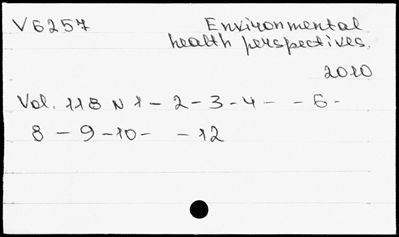 V6257
Environmental
health perspectives.
2010
Vol. 118 N 1 - 2 - 3 - 4 - - 6 -
8 - 9 - 10 - - 12